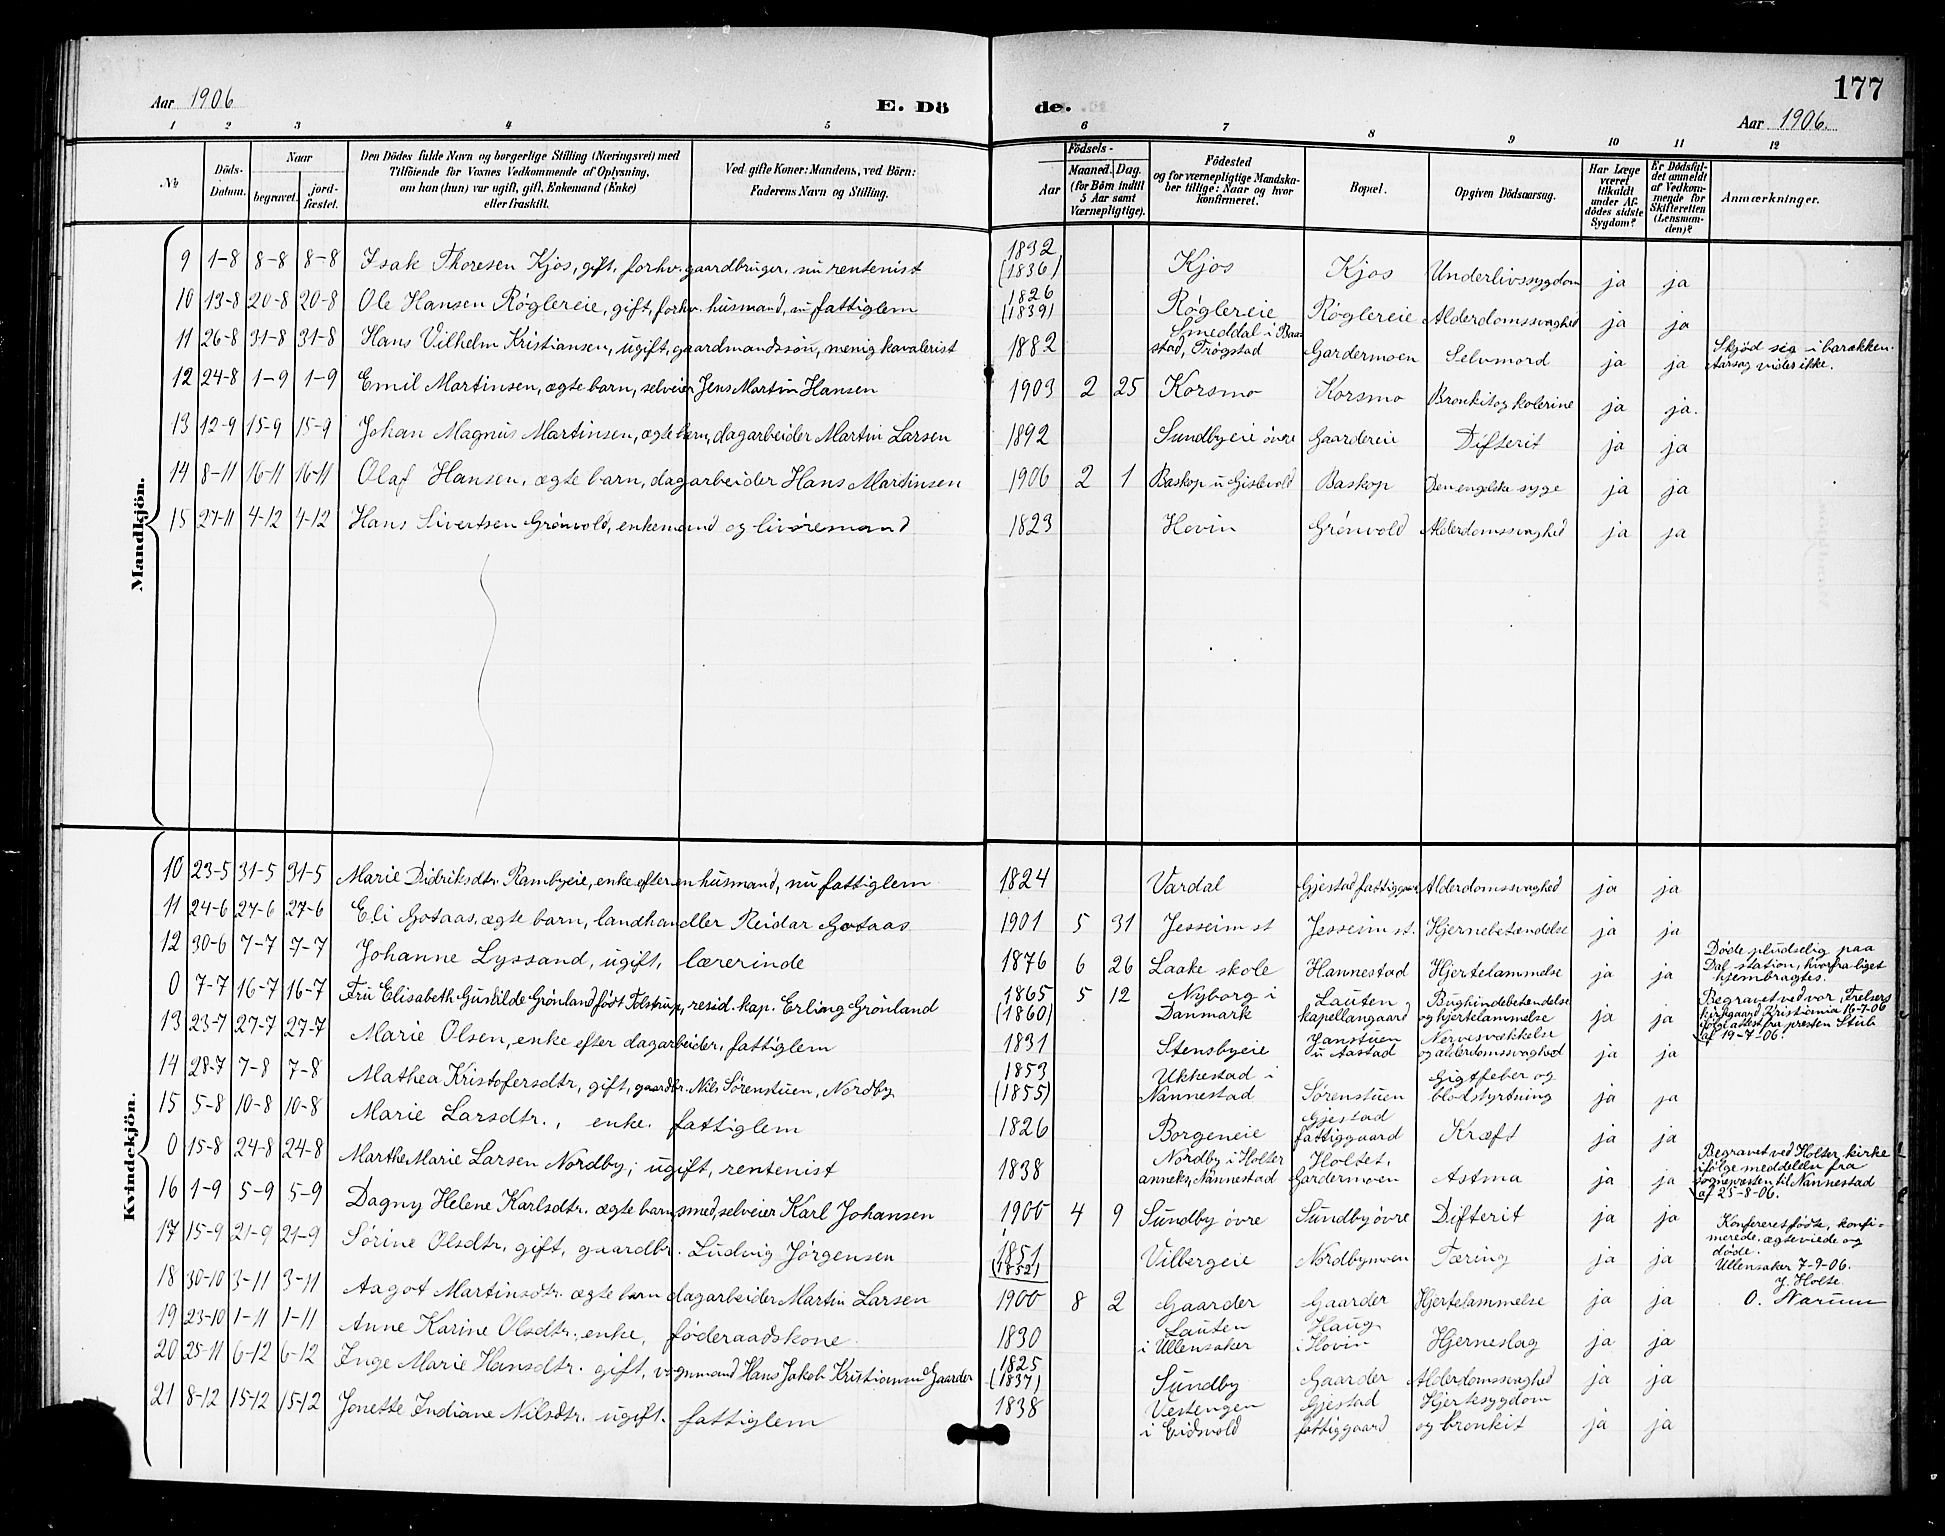 177
Aar 1906 E. Dö de. Aar 1906.
1 2 3 4 5 6 7 8 9 10 11 12
No. Döds-Datum. Naar begravet. jord-fæstet. Den Dödes fulde Navn og borgerlige Stilling (Næringsvei) med Tilföiende for Voxnes Vedkommende af Oplysning, om han (hun) var ugift, gift, Enkemand (Enke) eller fraskilt. Ved gifte Koner: Mandens, ved Börn: Faderens Navn og Stilling. Födsels- Aar Maaned. Dag. (for Börn indtil 5 Aar samt Værnepligtige). Födested og for værnepligtige Mandska-ber tillige: Naar og hvor konfirmeret. Bopæl. Opgiven Dödsaarsag. Har Læge været tilkaldt under Af-dödes sidste Sygdom? Er Dödsfal-det anmeldt af Vedkom-mende for Skifteretten (Lensman-den)? Anmærkninger.
Mandkjön.
9 1-8 8-8 8-8 Isak Thoresen Kjos, gift, forhv. gaardbruger, nu rentenist 1832 (1836) Kjos Kjos Underlivssygdom ja ja
10 13-8 20-8 20-8 Ole Hansen Røglereie, gift, forhv. husmand, nu fattiglem 1826 (1839) Røglereie Røglereie Alderdomssvaghed ja ja
11 26-8 31-8 31-8 Hans Vilhelm Kristiansen, ugift, gaardmandssøn, menig kavalerist 1882 Smeddal i Baastad, Trøgstad Gardermoen Selvmord ja ja Skjød sig i barakken. Aarsag vides ikke.
12 24-8 1-9 1-9 Emil Martinsen, ægte barn, selveier Jens Martin Hansen 1903 2 25 Korsmo Korsmo Bronkit og kolerine ja ja.
13 12-9 15-9 15-9 Johan Magnus Martinsen, ægte barn, dagarbeider Martin Larsen 1892 Sundbyeie øvre Gaardereie Difterit ja ja
14 8-11 16-11 16-11 Olaf Hansen, ægte barn, dagarbeider Hans Martinsen 1906 2 1 Baskop u Gislevold Baskop Den engelske syge ja ja
15 27-11 4-12 4-12 Hans Sivertsen Grønvold, enkemand og livøresmand 1823 Hovin Grønvold Alderdomssvaghed ja ja
Kvindekjön.
10 23-5 31-5 31-5 Marie Didriksdtr. Rambyeie, enke efter en husmand, nu fattiglem 1824 Vardal Gjestad fattiggaard Alderdomssvaghed ja ja
11 24-6 27-6 27-6 Eli Gotaas, ægte barn, landhandler Reidar Gotaas 1901 5 31 Jesseim st Jesseim st. Hjernebetændelse ja ja
12 30-6 7-7 7-7 Johanne Lyssand, ugift, lærerinde 1876 6 26 Laake skole Hannestad Hjertelammelse ja ja Døde pludselig paa Dal station, hvorfra liget hjembragtes.
0 7-7 16-7 16-7 Fru Elisabeth Gunhilde Grønland født Tolstrup, resid. kap. Erling Grønland 1865 (1860) 5 12 Nyborg i Danmark Lauten kapellangaard Bughindebetændelse og hjertelammelse ja ja Begravet ved vor Frelsers kirkegaard Kristiania 16-7-06 ifølge attest fra presten Stub af 19-7-06.
13 23-7 27-7 27-7 Marie Olsen, enke efter dagarbeider, fattiglem 1831 Stensbyeie Janstuen u Aastad Nervesvækkelse og alderdomssvaghed ja ja
14 28-7 7-8 7-8 Mathea Kristofersdtr, gift, gaardbr. Nils Sørenstuen, Nordby 1853 (1855) Ukkestad i Nannestad Sørenstuen Gigtfeber og blodstyrtning ja ja
15 5-8 10-8 10-8 Marie Larsdtr., enke. fattiglem 1826 Borgeneie Gjestad fattiggaard Kræft ja ja
0 15-8 24-8 24-8 Marthe Marie Larsen Nordby, ugift, rentenist 1838 Nordby i Holter anneks, Nannestad Holtet, Gardermoen Astma ja ja Begravet ved Holter kirke ifølge meddelelse fra sognepresten til Nannestad af 25-8-06.
16 1-9 5-9 5-9 Dagny Helene Karlsdtr. ægte barn, smed, selveier Karl Johansen 1900 4 9 Sundby øvre Sundby øvre Difterit ja ja
17 15-9 21-9 21-9 Sørine Olsdtr, gift, gaardbr. Ludvig Jørgensen 1851 (1852) Vilbergeie Nordbymoen Tæring ja ja Konfereret fødte, konfirmerede, ægteviede og døde. Ullensaker 7-9-06. J. Holte O. Narum
18 30-10 3-11 3-11 Aagot Martinsdtr. ægte barn dagarbeider Martin Larsen 1900 8 2 Gaarder Gaarder Hjertelammelse ja ja
19 23-10 1-11 1-11 Anne Karine Olsdtr, enke, føderaadskone 1830 Lauten i Ullensaker Haug i Hovin Hjerneslag ja ja
20 25-11 6-12 6-12 Inge Marie Hansdtr. gift, vognmand Hans Jakob Kristiansen Gaarder 1825 (1837) Sundby Gaarder Alderdomssvaghed ja ja
21 8-12 15-12 15-12 Jonette Indiane Nilsdtr. ugift. fattiglem 1838 Vestengen i Eidsvold Gjestad fattiggaard Hjertesygdom og bronkit ja ja